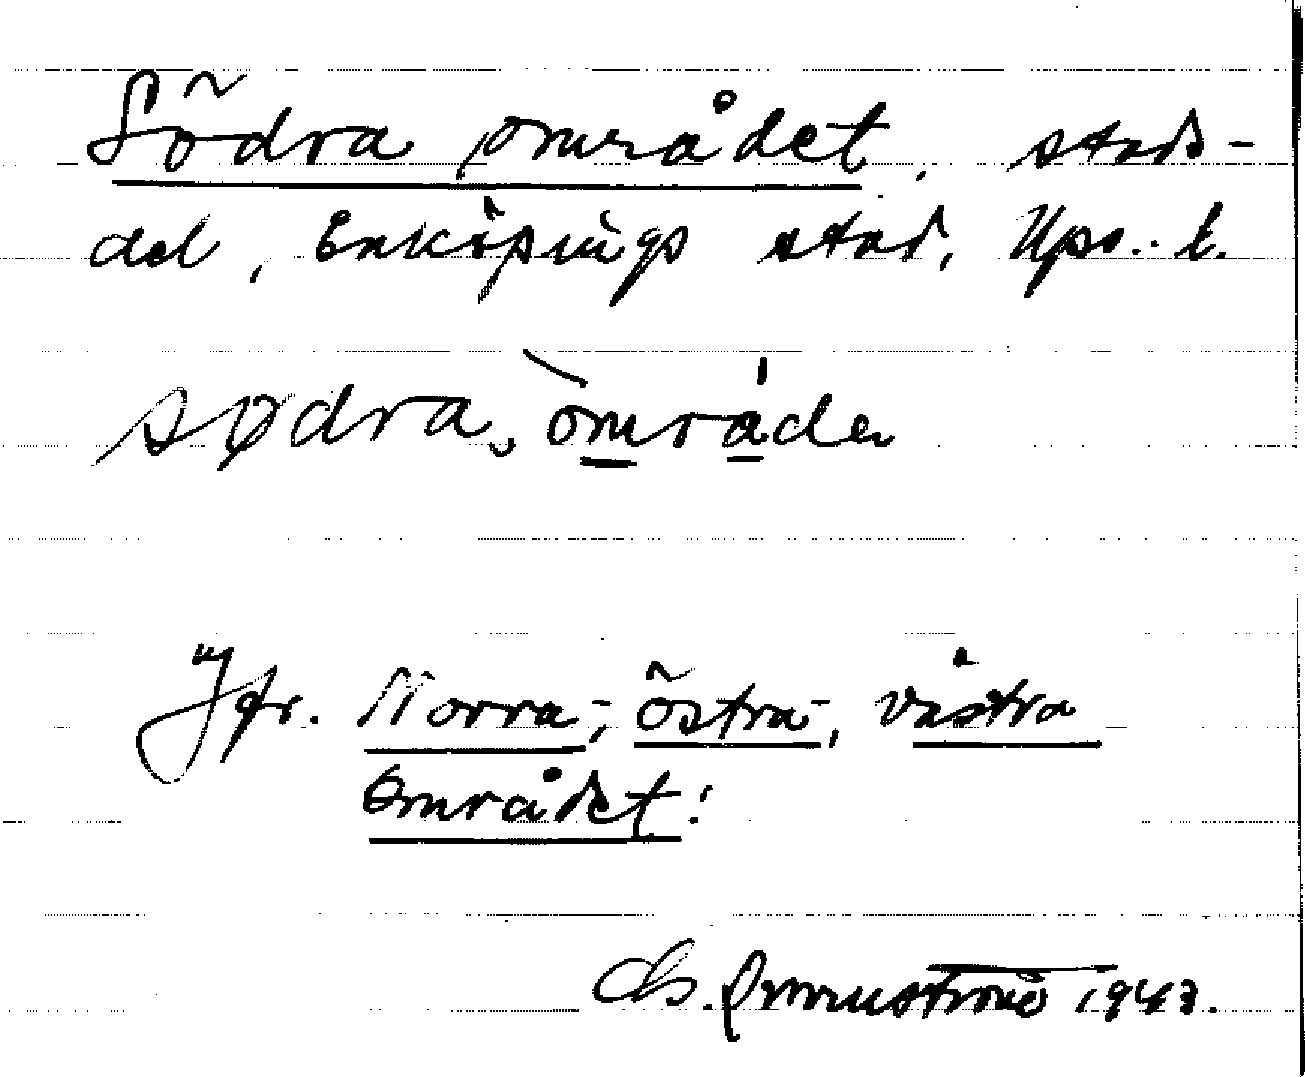 Södra området, stads-
del, Enköpings stad, Upps. l.
sødra, område
Jfr. Norra-, östra-, västra
området!
1943.